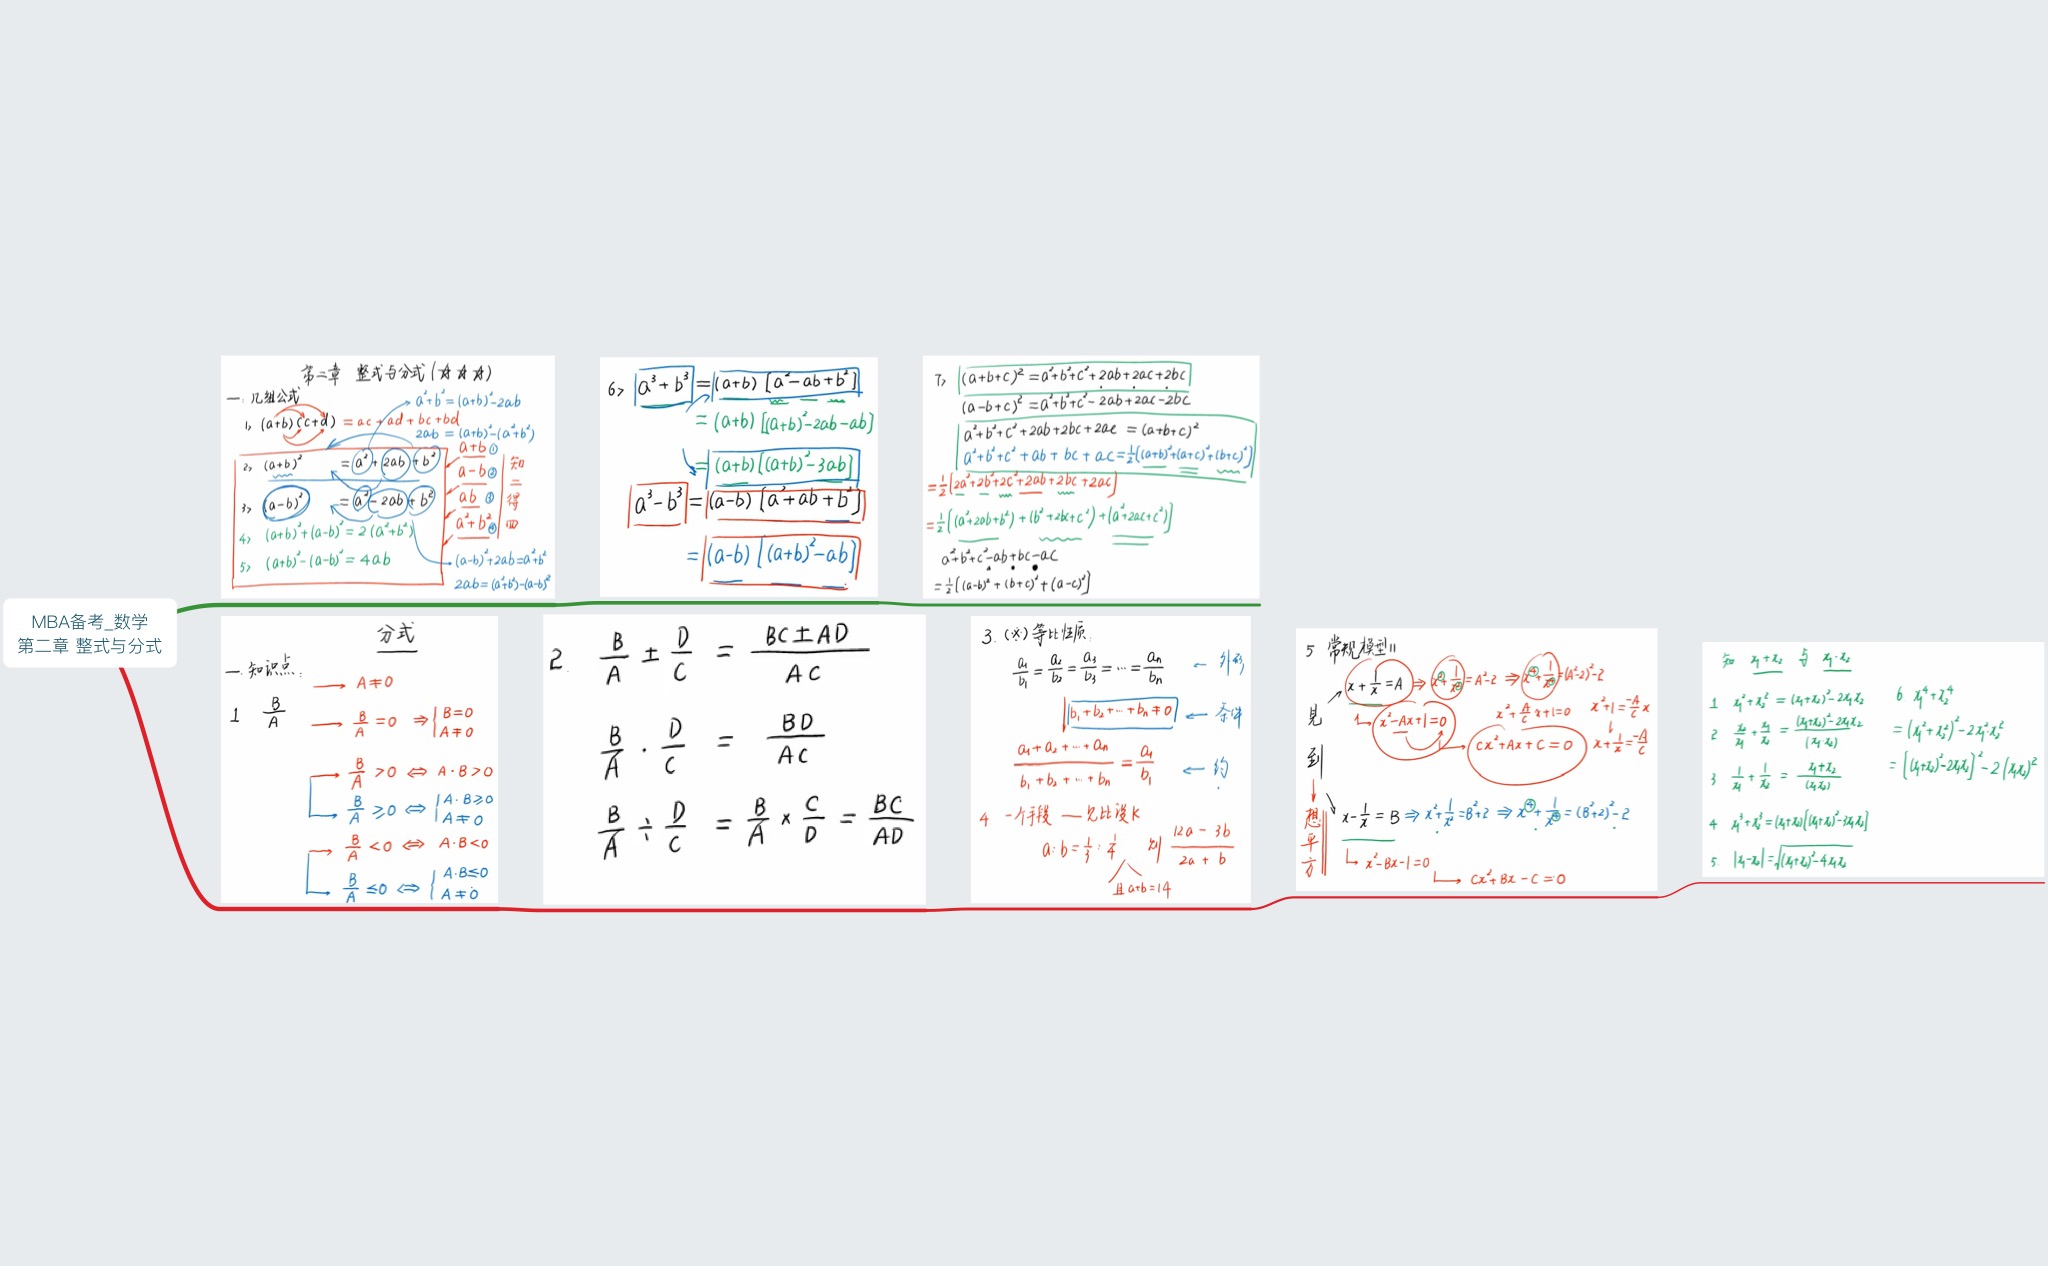 MBA备考_数学
第二章 整式与分式
第二章 整式与分式(☆☆☆)
一. 几组公式
a²+b²=(a+b)²-2ab
1> (a+b)(c+d) = ac + ad + bc + bd
2ab = (a+b)²-(a²+b²)
2> (a+b)² = a² + 2ab + b²
3> (a-b)² = a² - 2ab + b²
4> (a+b)²+(a-b)² = 2(a²+b²)
5> (a+b)²-(a-b)² = 4ab
a+b ①
a-b ②
ab ③
a²+b² ④
知二得四
(a-b)²+2ab=a²+b²
2ab=(a²+b²)-(a-b)²
6> a³+b³ = (a+b)[a²-ab+b²]
= (a+b)[(a+b)²-2ab-ab]
= (a+b)[(a+b)²-3ab]
a³-b³ = (a-b)[a²+ab+b²]
= (a-b)[(a+b)²-ab]
7> (a+b+c)² = a²+b²+c²+2ab+2ac+2bc
(a-b+c)² = a²+b²+c²-2ab+2ac-2bc
a²+b²+c²+2ab+2bc+2ac = (a+b+c)²
a²+b²+c²+ab+bc+ac=½[(a+b)²+(a+c)²+(b+c)²]
=½[2a²+2b²+2c²+2ab+2bc+2ac]
=½[(a²+2ab+b²)+(b²+2bc+c²)+(a²+2ac+c²)]
a²+b²+c²-ab+bc-ac
=½[(a-b)²+(b+c)²+(a-c)²]
分式
一. 知识点:
1 B/A
→ A≠0
→ B/A =0 ⇒ { B=0 A≠0
B/A >0 ⇔ A·B>0
B/A ≥0 ⇔ { A·B≥0 A≠0
B/A <0 ⇔ A·B<0
B/A ≤0 ⇔ { A·B≤0 A≠0
2. B/A ± D/C = BC±AD / AC
B/A · D/C = BD/AC
B/A ÷ D/C = B/A × C/D = BC/AD
3. (※) 等比性质
a₁/b₁ = a₂/b₂ = a₃/b₃ = ··· = aₙ/bₙ ← 外形
b₁+b₂+···+bₙ≠0 ← 条件
a₁+a₂+···+aₙ / b₁+b₂+···+bₙ = a₁/b₁ ←
4 一个手段 — 见比设K
a:b=1/3:1/4 则 12a-3b / 2a+b
且a+b=14
5 常规模型
见到
→ 想平方
x+1/x=A ⇒ x²+1/x²=A²-2 ⇒ x⁴+1/x⁴=(A²-2)²-2
x²-Ax+1=0
cx²+Ax+C=0
x²+A/C x+1=0
x²+1=-A/C x
x+1/x=-A/C
x-1/x=B ⇒ x²+1/x²=B²+2 ⇒ x⁴+1/x⁴=(B²+2)²-2
x²-Bx-1=0
Cx²+Bx-C=0
知 x₁+x₂ 与 x₁·x₂
1 x₁²+x₂²=(x₁+x₂)²-2x₁x₂
2 x₂/x₁+x₁/x₂ = (x₁+x₂)²-2x₁x₂ / (x₁x₂)
3 1/x₁+1/x₂ = x₁+x₂ / (x₁x₂)
4 x₁³+x₂³=(x₁+x₂)[(x₁+x₂)²-3x₁x₂]
5 |x₁-x₂|=√(x₁+x₂)²-4x₁x₂
6 x₁⁴+x₂⁴
=(x₁²+x₂²)²-2x₁²x₂²
=[(x₁+x₂)²-2x₁x₂]²-2(x₁x₂)²